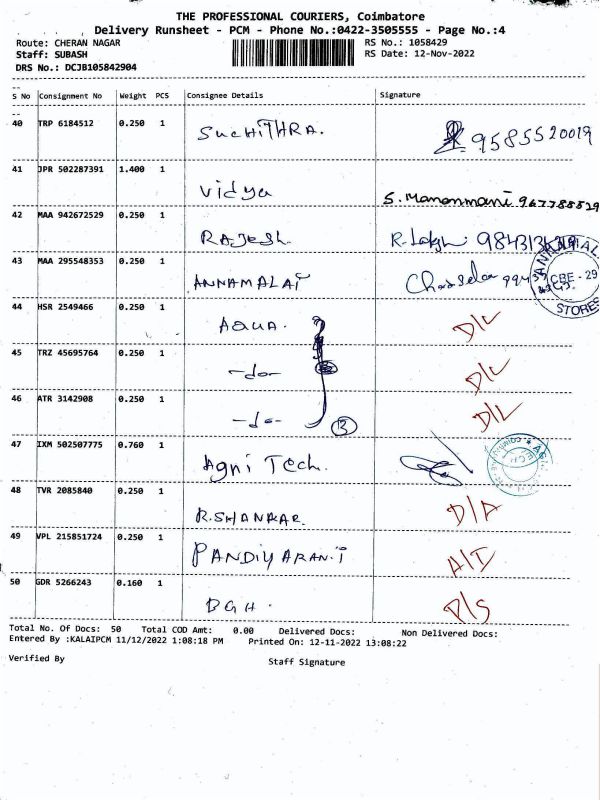 THE PROFESSIONAL COURIERS, Coimbatore
Delivery Runsheet - PCM - Phone No.:0422-3505555 - Page No.:4
Route: CHERAN NAGAR RS No.: 1058429
Staff: SUBASH RS Date: 12-Nov-2022
DRS No.: DCJB105842904
S No Consignment No Weight PCS Consignee Details Signature
40 TRP 6184512 0.250 1 SUCHITHRA. 9585520019
41 JPR 502287391 1.400 1 Vidya S. Manonmani
42 MAA 942672529 0.250 1 RAJESH.
43 MAA 295548353 0.250 1 ANNAMALAI
CBE - 29
STORES
44 HSR 2549466 0.250 1 AQUA. D/L
45 TRZ 45695764 0.250 1 -do- D/L
46 ATR 3142908 0.250 1 -do- 3 D/L
47 IXM 502507775 0.760 1 Agni Tech.
48 TVR 2085840 0.250 1 R.SHANKAR. D/A
49 VPL 215851724 0.250 1 PANDIYARAN.T A/I
50 GDR 5266243 0.160 1 DGH. D/S
Total No. Of Docs: 50 Total COD Amt: 0.00 Delivered Docs: Non Delivered Docs:
Entered By :KALAIPCM 11/12/2022 1:08:18 PM Printed On: 12-11-2022 13:08:22
Verified By Staff Signature